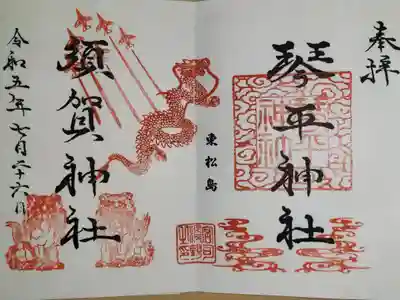 奉拝
琴平神社
東松島
須賀神社
令和五年七月二十六日